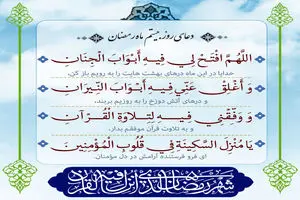 دعای روز بیستم ماه رمضان
اللَّهُمَّ افْتَحْ لِي فِيهِ أَبْوَابَ الْجِنَانِ
خدایا در این ماه درهای بهشت هایت را به رویم باز کن،
وَ أَغْلِقْ عَنِّي فِيهِ أَبْوَابَ النِّيرَانِ
و درهای آتش دوزخ را به رویم ببند،
وَ وَفِّقْنِي فِيهِ لِتِلاوَةِ الْقُرْآنِ
و به تلاوت قرآن موفقم بدار،
يَا مُنْزِلَ السَّكِينَةِ فِي قُلُوبِ الْمُؤْمِنِينَ
ای فرو فرستنده آرامش در دل مؤمنان.
شهر رمضان الذی انزل فیه القرآن